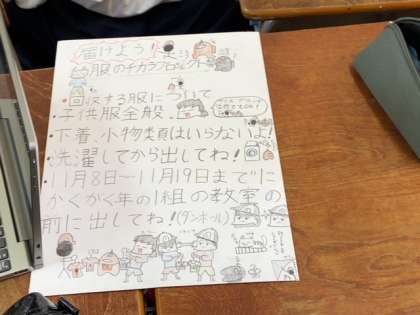 届けよう!
服のチカラプロジェクト
回収する服について
・子供服全般
・下着、小物類はいらないよ!
・洗濯してから出してね!
・11月8日〜11月19日までに
かくがく年の1組の教室の
前に出してね!(ダンボール)